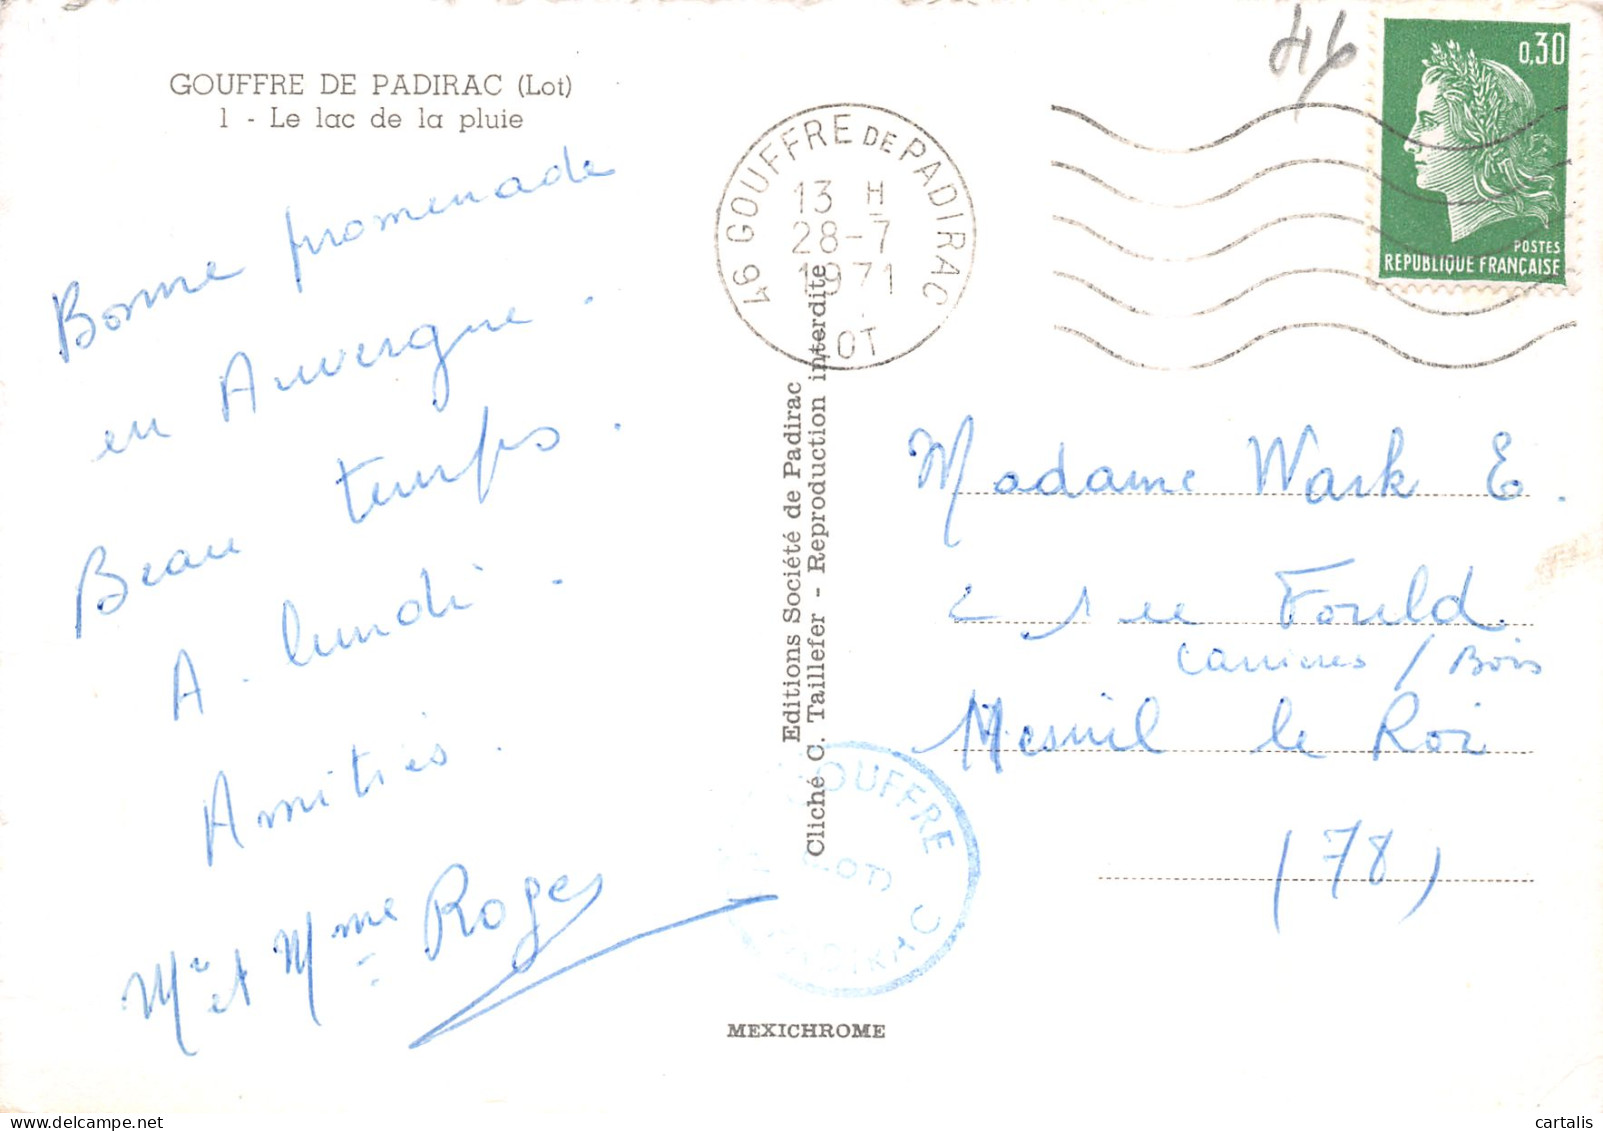 GOUFFRE DE PADIRAC (Lot)
1 - Le lac de la pluie
Bonne promenade
en Auvergne.
Beau temps.
A lundi.
Amitiés.
Mr et Mme Roges
46 GOUFFRE DE PADIRAC
13 H
28-7
1971
LOT
46
0,30
POSTES
REPUBLIQUE FRANÇAISE
Editions Société de Padirac
Cliché C. Taillefer - Reproduction interdite
Madame Wark E.
rue Fould
Carrières / Bois
Mesnil le Roi
(78)
GOUFFRE
(LOT)
PADIRAC
MEXICHROME
cartalis
www.delcampe.net